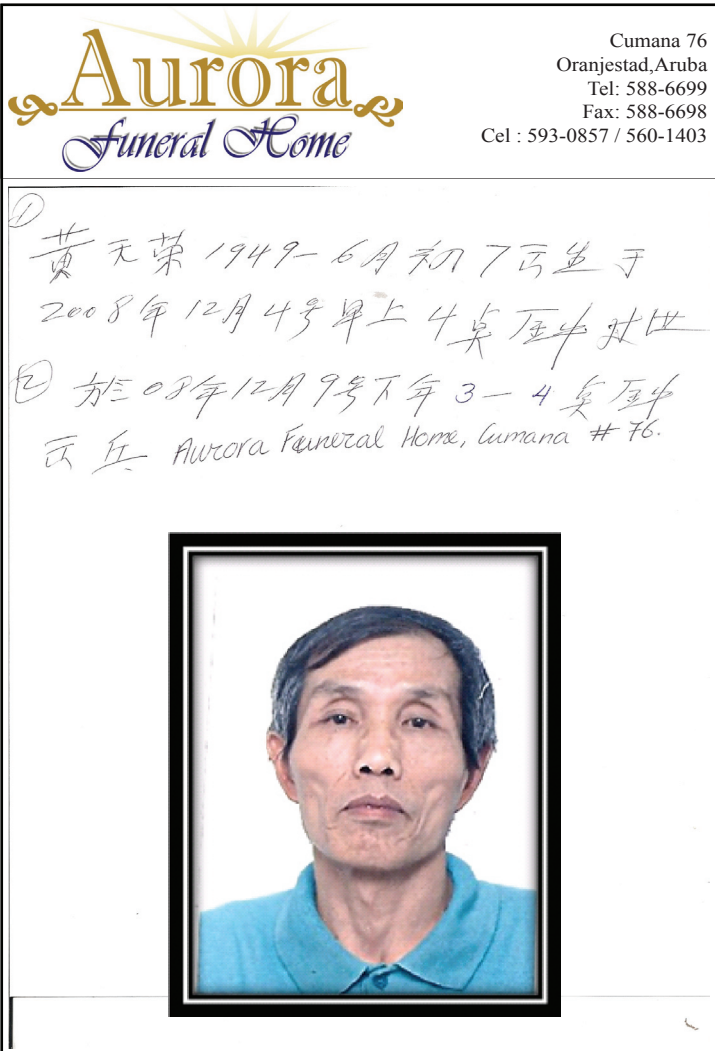 Aurora
Funeral Home
Cumana 76
Oranjestad,Aruba
Tel: 588-6699
Fax: 588-6698
Cel : 593-0857 / 560-1403
①
黄天荣 1949-6月初7出生于
2008年12月4号早上4点
② 於08年12月9号下午3-4点
Aurora Funeral Home, Cumana # 76.